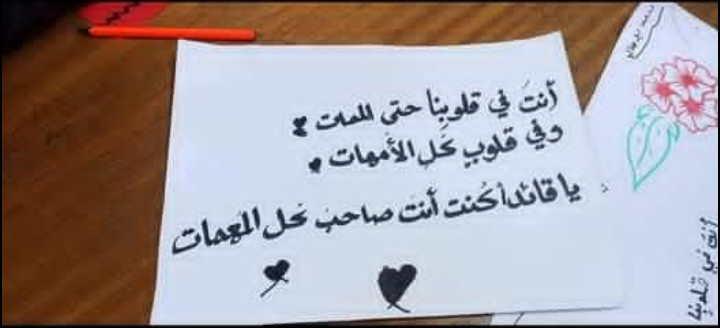 أنتَ في قلوبِنا حتى الممات
وفي قلوبِ كُلِ الأمهات
يا قائداً كُنت أنتَ صاحبَ كُل المَهمات
أنتَ في قلوبنا